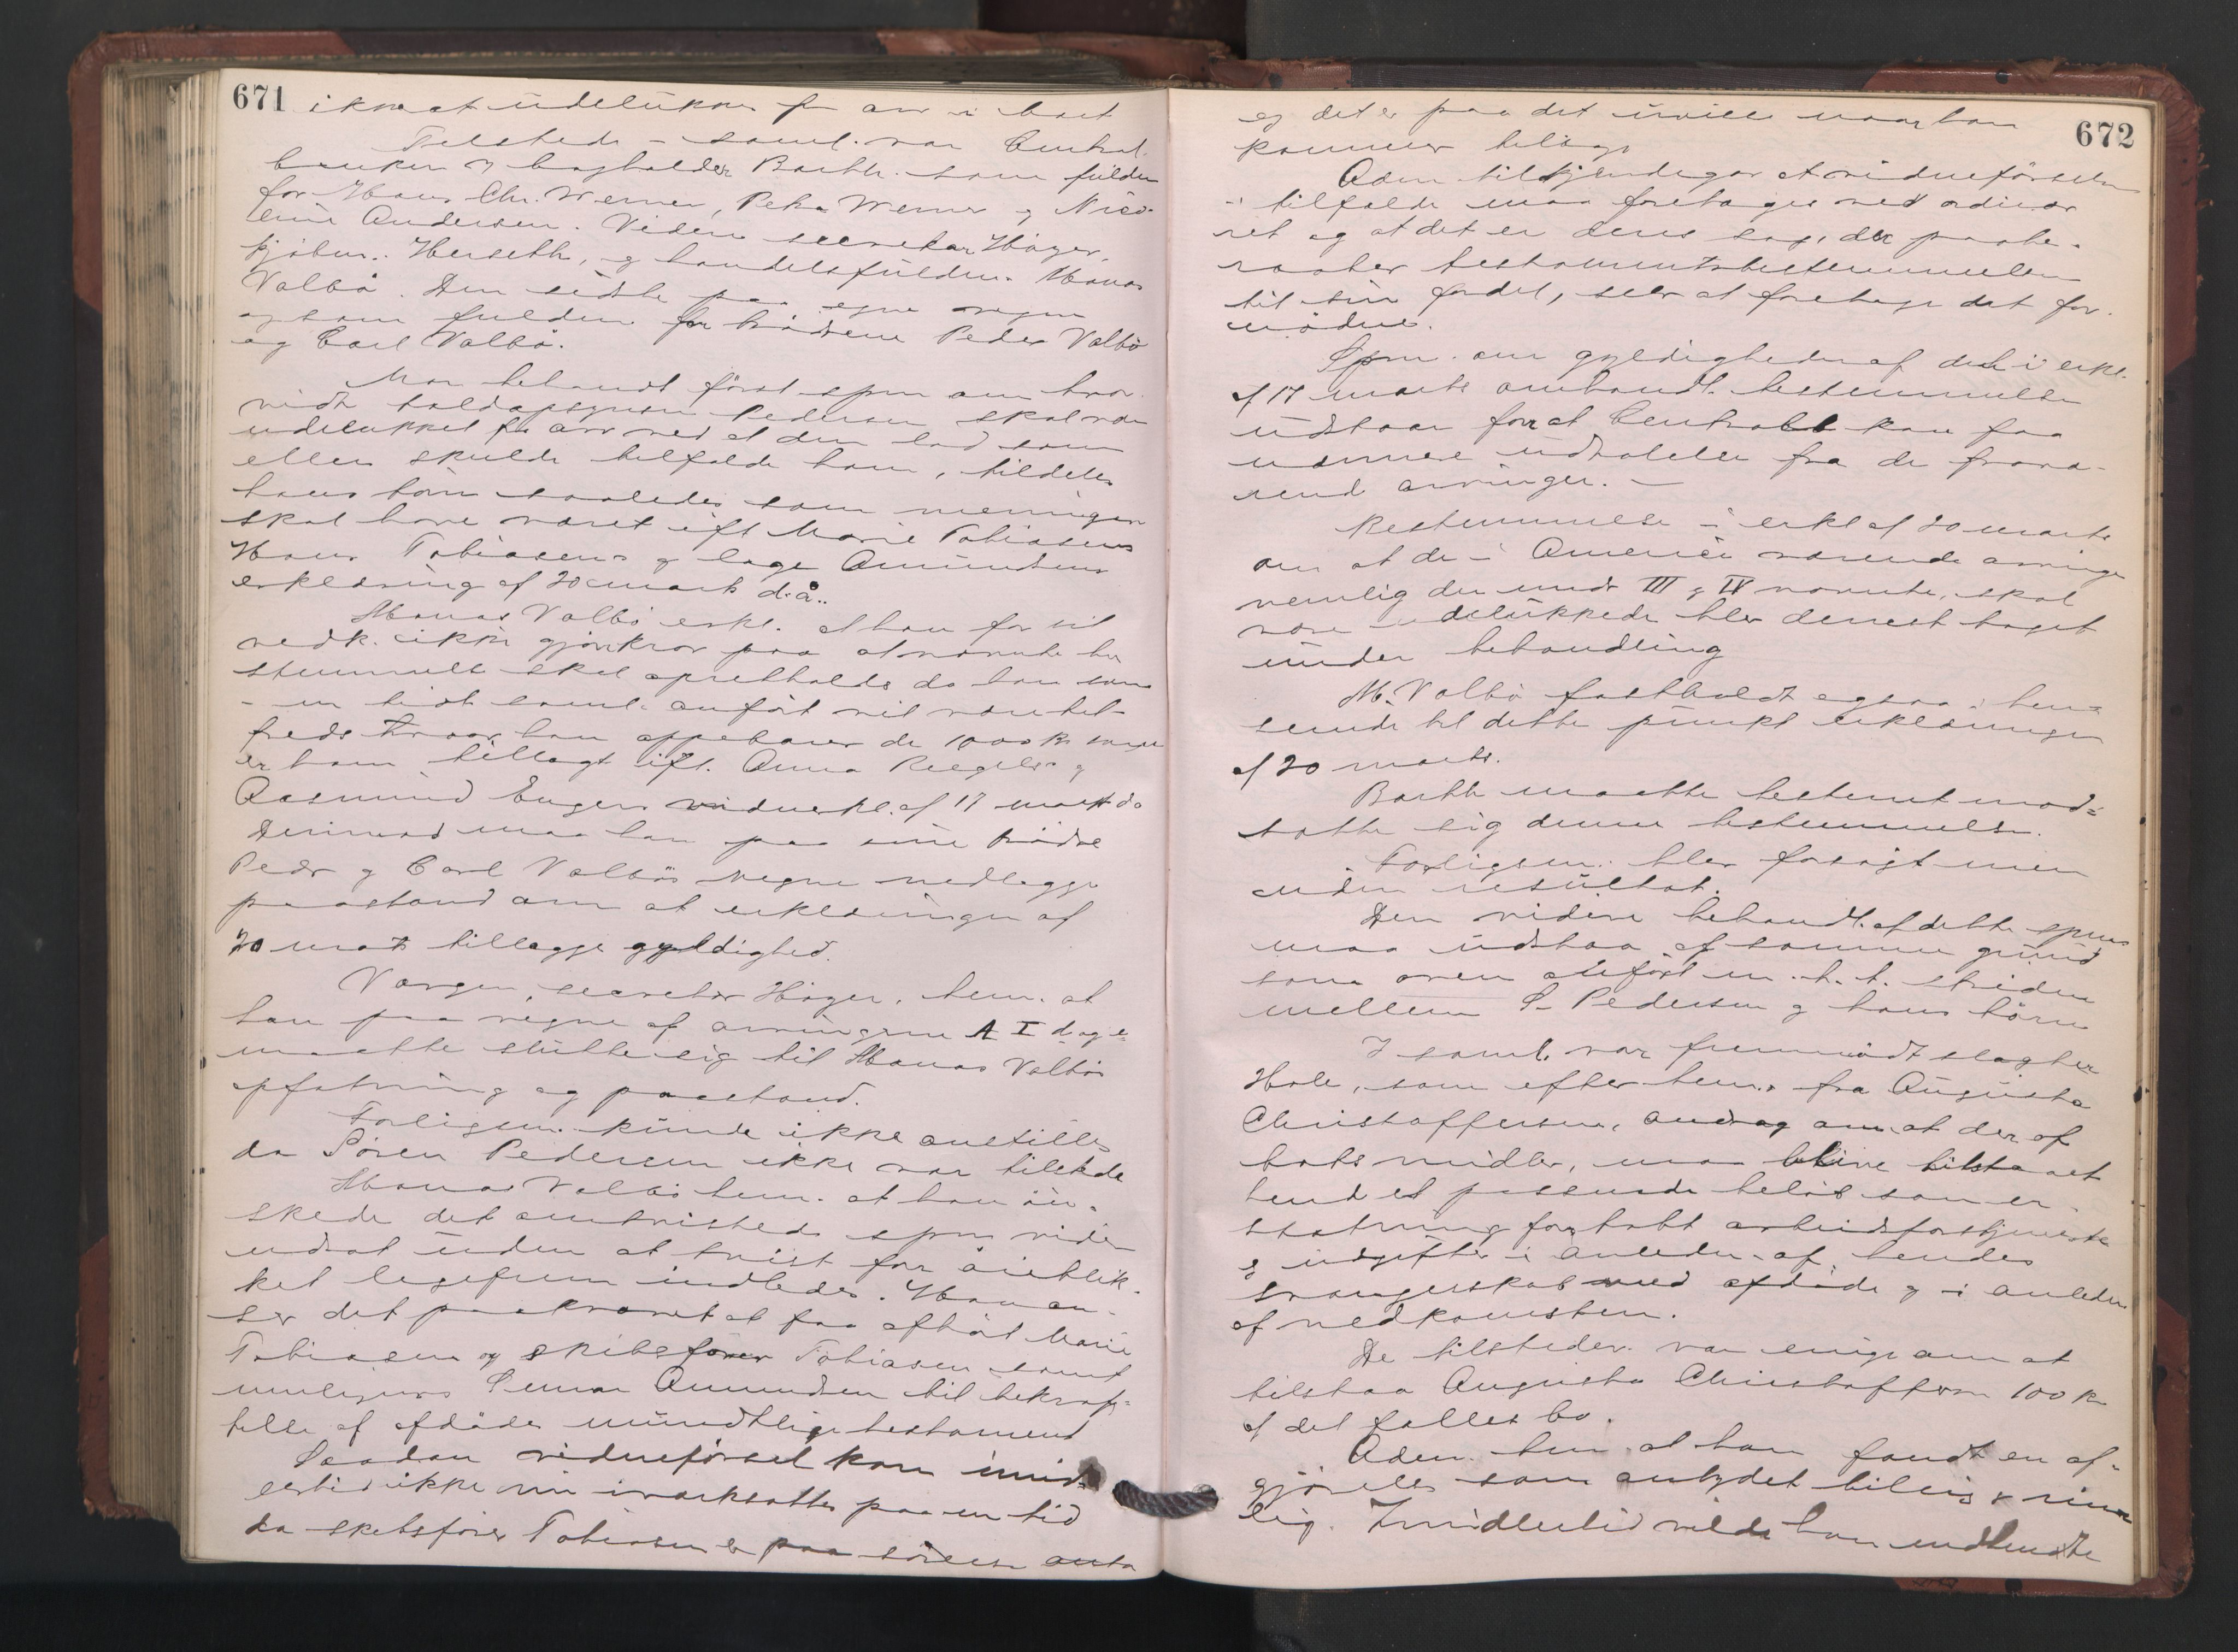 671
ikke at udelukkes fra arv i boet
Tilstede i saml. var Central-
banken v. bogholder Barth. som fuldm
for Hans Chr. Werner, Petra Werner og Nico-
line Andersen. Videre secretær Höyer,
kjöbm. Herseth, og handelsfuldm. Monas
Valbö. Den sidste paa egne vegne
og som fuldm. for brödrene Peder Valbö
og Carl Valbö.
Man behandl först spm om hvor-
vidt toldopsynsm Pedersen skal være
udelukket fra arv ved at den lod som
ellers skulde tilfalde ham, tildeles
hans börn saaledes som meningen
skal have været ifl Marie Tobiasens
Hans Tobiasens og Lage Amundsens
erklæring af 20 marts d.å..
Monas Valbö erkl. at han for sit
vedk. ikke gjör krav paa at nævnte be
stemmelse skal opretholdes da han som
i en tidl. saml. anfört vil være til-
freds hvor han oppebærer de 1000 kr som
er ham tillagt ifl. Anna Riegels og
Aasmund Engers vidneerkl. af 17 marts da
Derimod maa han paa sine brödre
Peder og Carl Valbös vegne nedlægge
paastand om at erklæringen af
20 marts tillægges gyldighed.
Værgen, secretær Höyer, bem. at
han paa vegne af arvingerne A I d og e
maatte slutte sig til Monas Valbös
opfatning og paastand.
Forligsm. kunde ikke anstilles
da Sören Pedersen ikke var tilstede
Monas Valbö bem. at han ön-
skede det omtvistede spm videre
udsat uden at tvist for öieblik-
ket ligefrem indledes. Han an-
ser det paakrævet at faa afhört Marie
Tobiasen og skibsförer Tobiasen samt
muligens Lemar Amundsen til bekræf-
telse af afdödes mundtlige testament
Saadan vidneförsel kan imid-
lertid ikke nu iværksættes paa en tid
da skibsförer Tobiasen er paa söreise
672
og det er paa det uvisse naar han
kommer tilbage
Adm. tilkjendegav at vidneförselen
i tilfælde maa foretages ved ordinær
ret og at det er deres sag, der paabe-
raaber testamentsbestemmelsen
til sin fordel, selv at foretage det for-
nödne.
Spm. om gyldigheden af den i erkl.
af 17 marts omhandl. bestemmelse
udstaar for at Centralb kan faa
nærmere udtalelse fra de fravæ-
rende arvinger. —
Bestemmelse i erkl af 20 marts
om at de i Amerika værende arvinger
nemlig de under III og IV nævnte, skal
være udelukkede blev dernest taget
under behandling
M. Valbö fastholdt ogsaa i hen-
seende til dette punkt erklæringen
af 20 marts.
Barth maatte bestemt mod-
sætte sig denne bestemmelse.
Forligsm. blev forsögt men
uden resultat.
Den videre behandl. af dette spm
maa udstaa af samme grund
som oven anfört m. h. t. striden
mellem S. Pedersen og hans börn
I saml. var fremmödt slagter
Hole, som efter bem. fra Augusta
Christoffersen, androg om at der af
boets midler, maa blive tilstaaet
hende et passende belöb som er-
statning for tabt arbeidsfortjeneste
og udgifter i anledn. af hendes
svangerskab med afdöde og i anledn
af nedkomsten.
De tilstedev. var enige om at
tilstaa Augusta Christoffersen 100 kr
af det fælles bo.
Adm. bem. at han fandt en af-
gjörelse som antydet billig & rime
lig. Imidlertid vilde han indhente